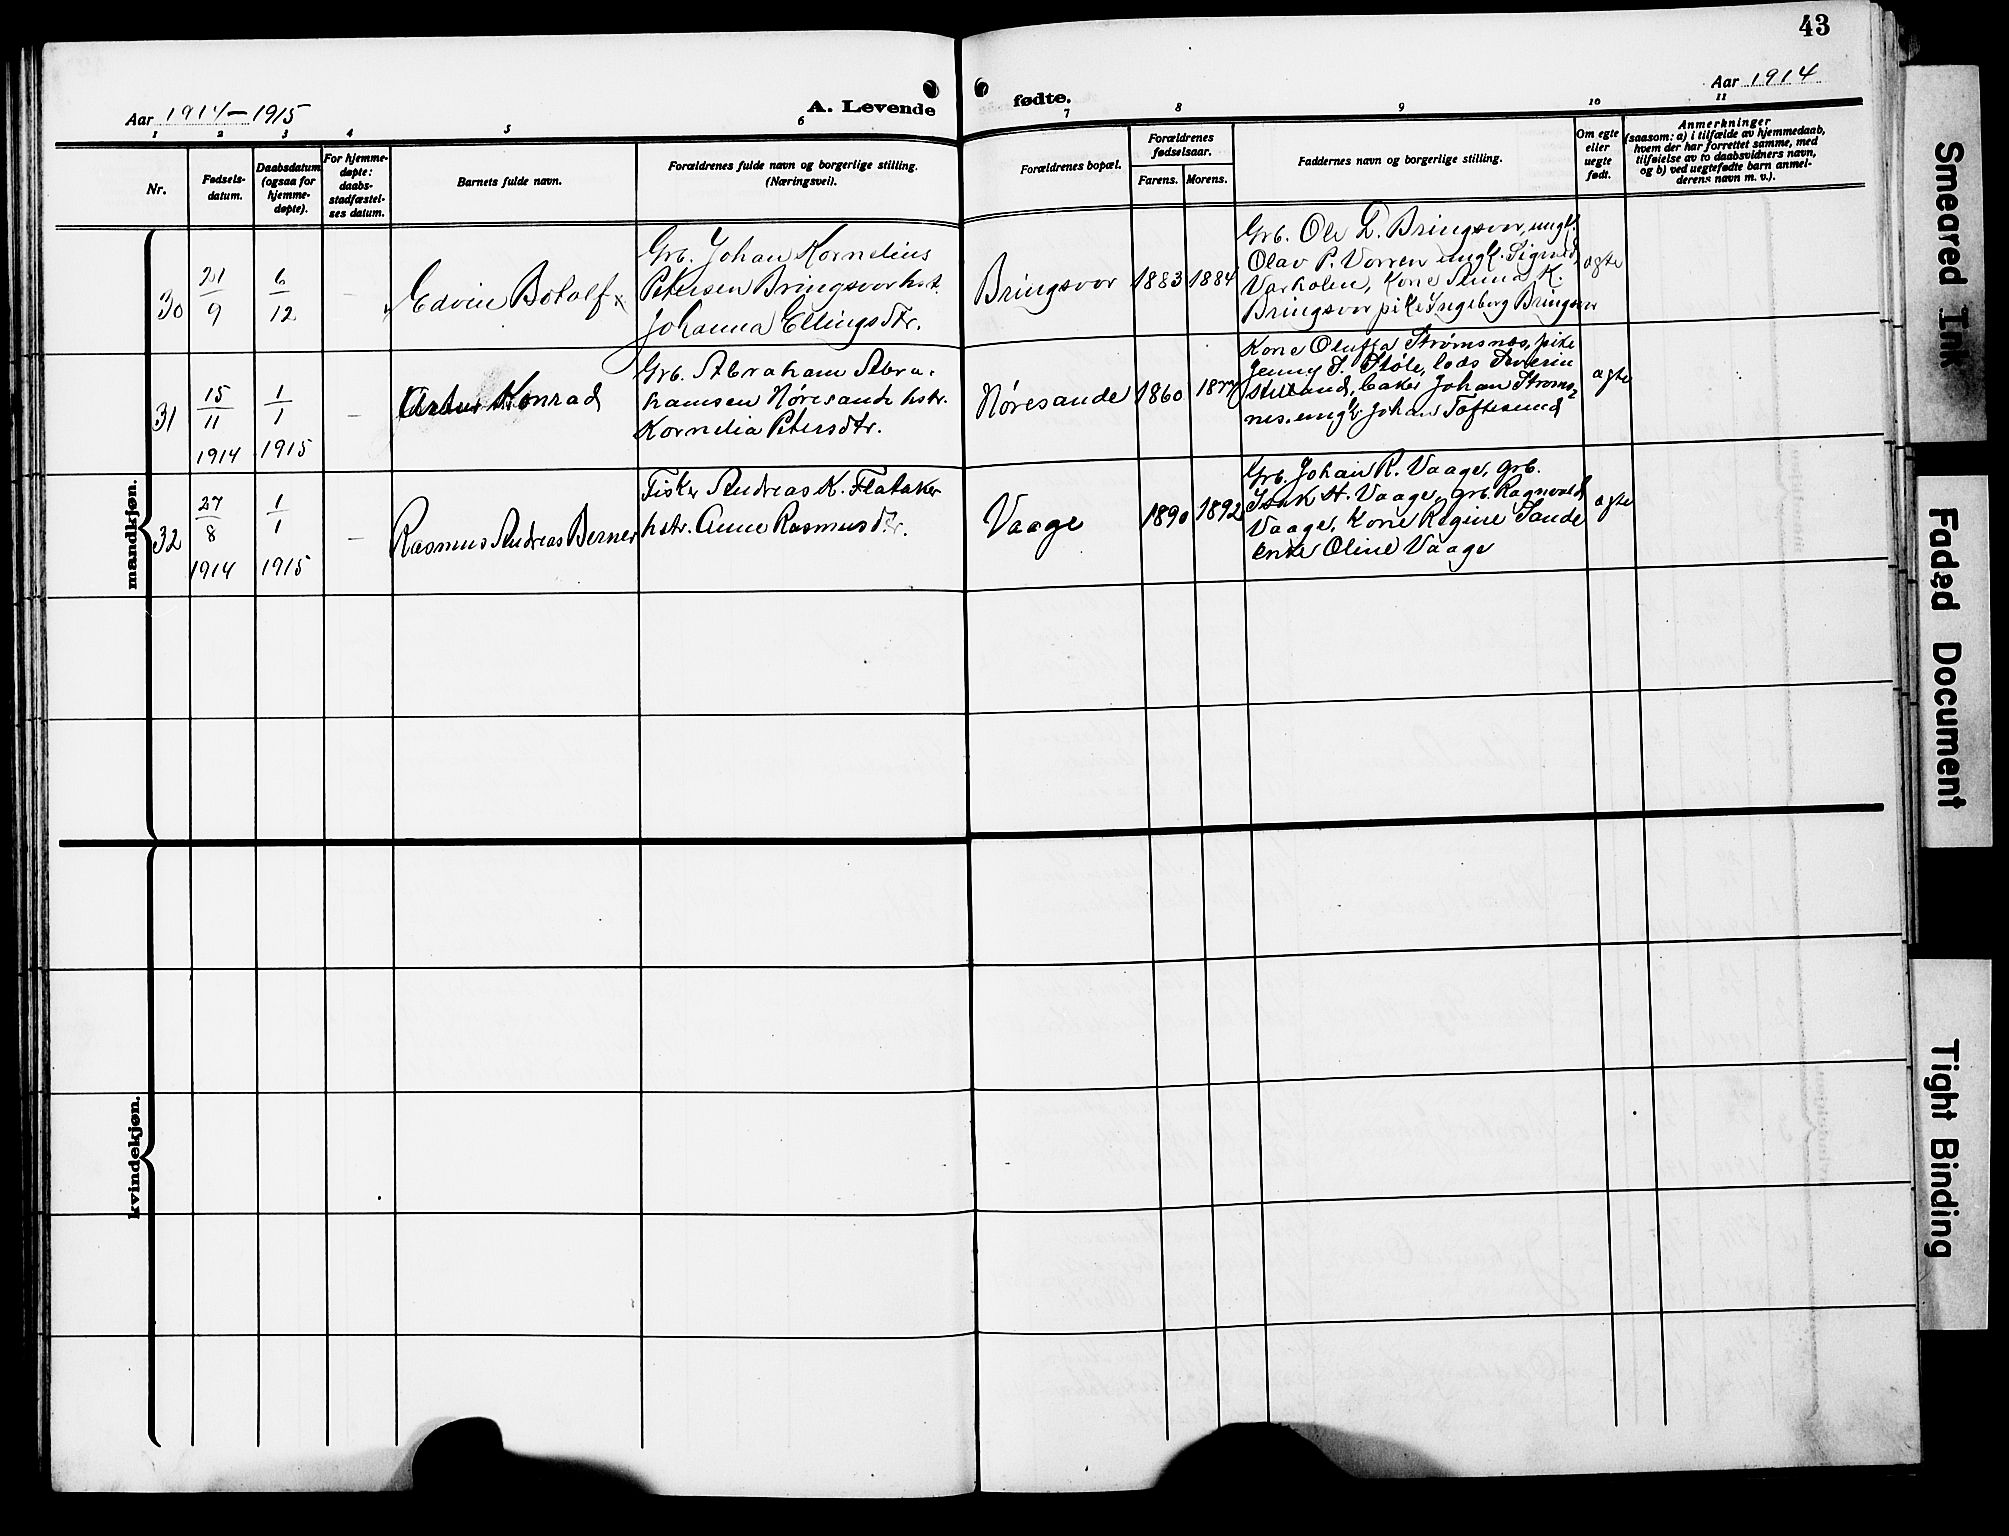 43
Aar 1914-1915
A. Levende
fødte.
Aar 1914
1 2 3 4 5 6 7 8 9 10 11
Nr.
Fødsels-
datum.
Daabsdatum
(ogsaa for
hjemme-
døpte).
For hjemme-
døpte:
daabs-
stadfæstel-
ses datum.
Barnets fulde navn.
Forældrenes fulde navn og borgerlige stilling.
(Næringsvei).
Forældrenes bopæl.
Forældrenes
fødselsaar.
Farens. Morens.
Faddernes navn og borgerlige stilling.
Om egte
eller
uegte
født.
Anmerkninger
(saasom: a) i tilfælde av hjemmedaab,
hvem der har forrettet samme, med
tilføielse av to daabsvidners navn,
og b) ved uegtefødte barn anmel-
derens navn m. v.).
mandkjøn.
30
21/9
6/12
-
Edvin Botolf
Grb. Johan Kornelius
Petersen Bringsvor hst.
Johanna Ellingsdtr.
Bringsvor
1883
1884
Grb. Ole E. Bringsvor, ungk.
Olav P. Vorren ungk. Sigurd
Varholm, Kone Anna K.
Bringsvor pike Ingeborg Bringsvor
egte
31
15/11
1914
1/1
1915
-
Konrad
Grb. Abraham Abra-
hamsen Nøresande hstr.
Kornelia Petersdtr.
Nøresande
1860
Kone Oluffa Strømsnes, pike
Jenny S. Støle, lods Severin
Johan Strøms-
nes, ungk. Johan Toftesund
egte
32
27/8
1914
1/1
1915
-
Rasmus Andreas Berner
Fisker Andreas K. Flataker
hstr. Anne Rasmusdtr.
Vaage
1890
1892
Grb. Johan R. Vaage, grb.
Isak H. Vaage, grb. Ragnvald
Vaage, Kone Regine Sande
enke Oline Vaage
egte
kvindekjøn.
Smeared Ink
Faded Document
Tight Binding